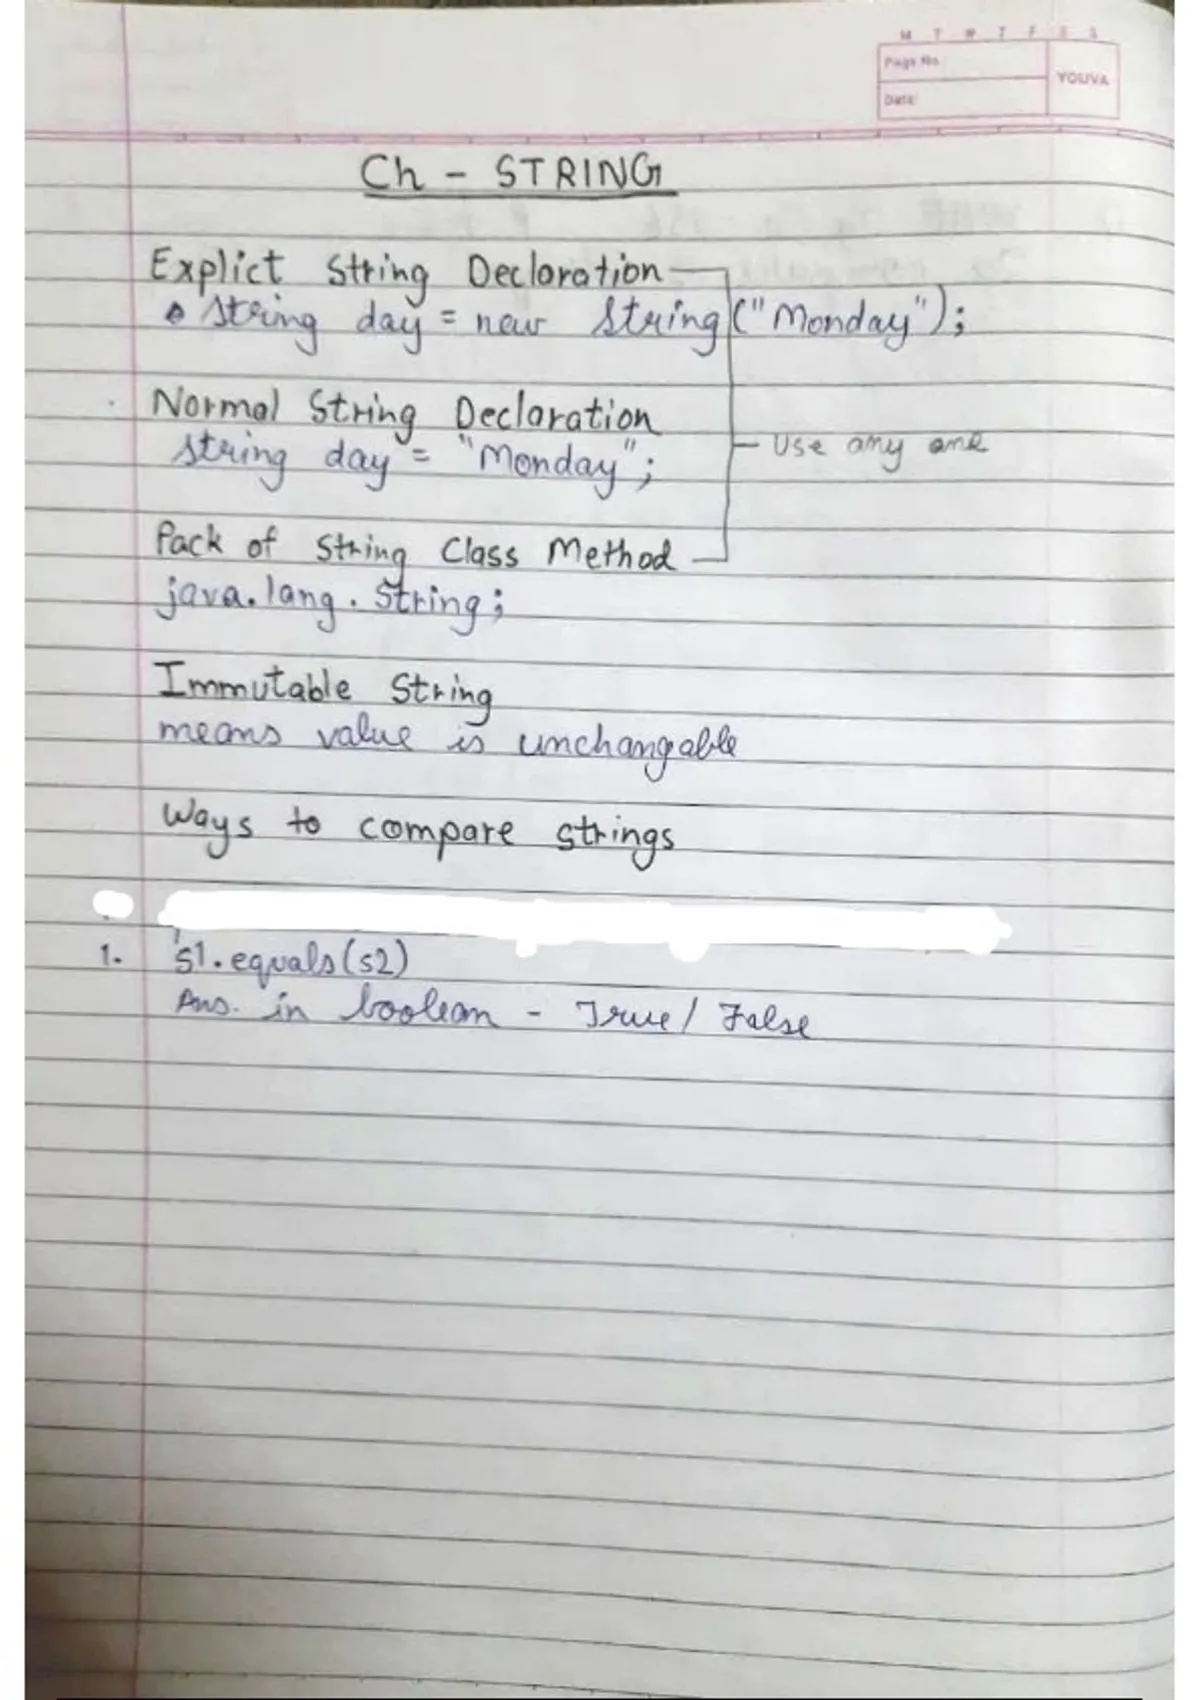 M T W T F S S
Page No.
YOUVA
Date:
Ch - STRING
Explict String Declaration
String day = new String("Monday");
Normal String Declaration
String day = "Monday";
Use any one
Pack of String Class Method
java.lang.String;
Immutable String
means value is unchangable
Ways to compare strings
1. s1.equals(s2)
Ans. in boolean - True/ False